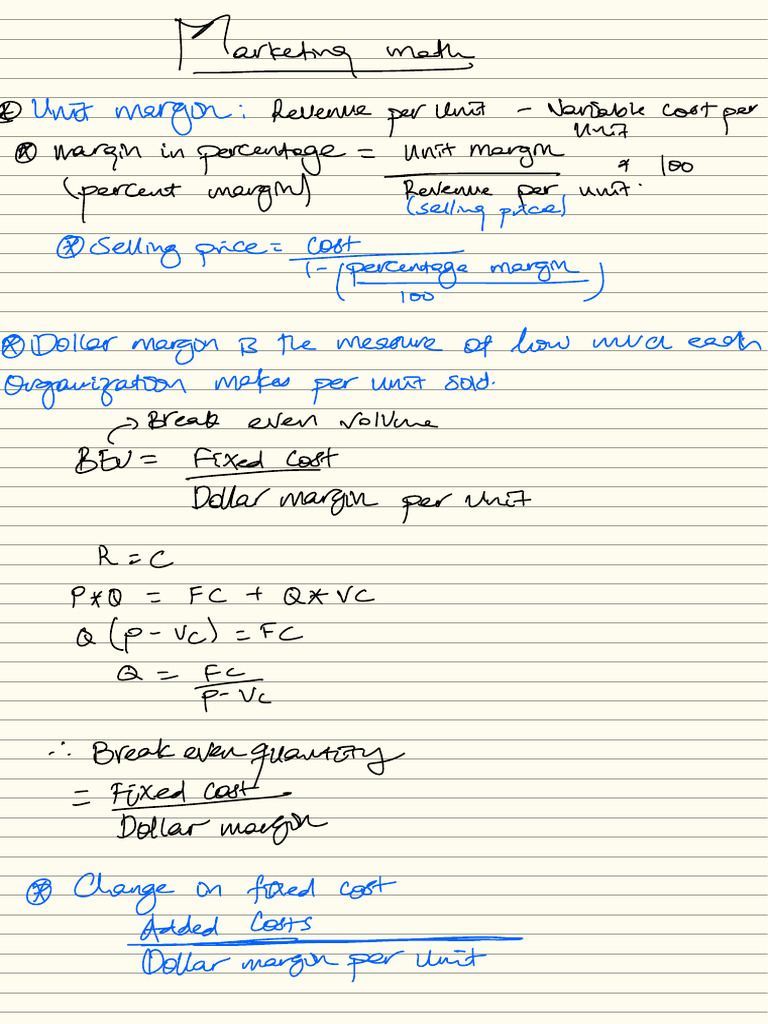 Marketing math
⊛ Unit margin: Revenue per unit - Variable cost per unit
⊛ Margin in percentage = Unit margin / Revenue per unit. * 100
(percent margin) (selling price)
⊛ Selling price = Cost / 1-(percentage margin / 100)
⊛ Dollar margin is the measure of how much each
Organization makes per unit sold.
→ Break even volume
BEV = Fixed cost / Dollar margin per unit
R = C
P*Q = FC + Q*VC
Q (P-VC) = FC
Q = FC / P-VC
∴ Break even quantity
= Fixed cost / Dollar margin
⊛ Change on fixed cost
Added Costs / Dollar margin per unit